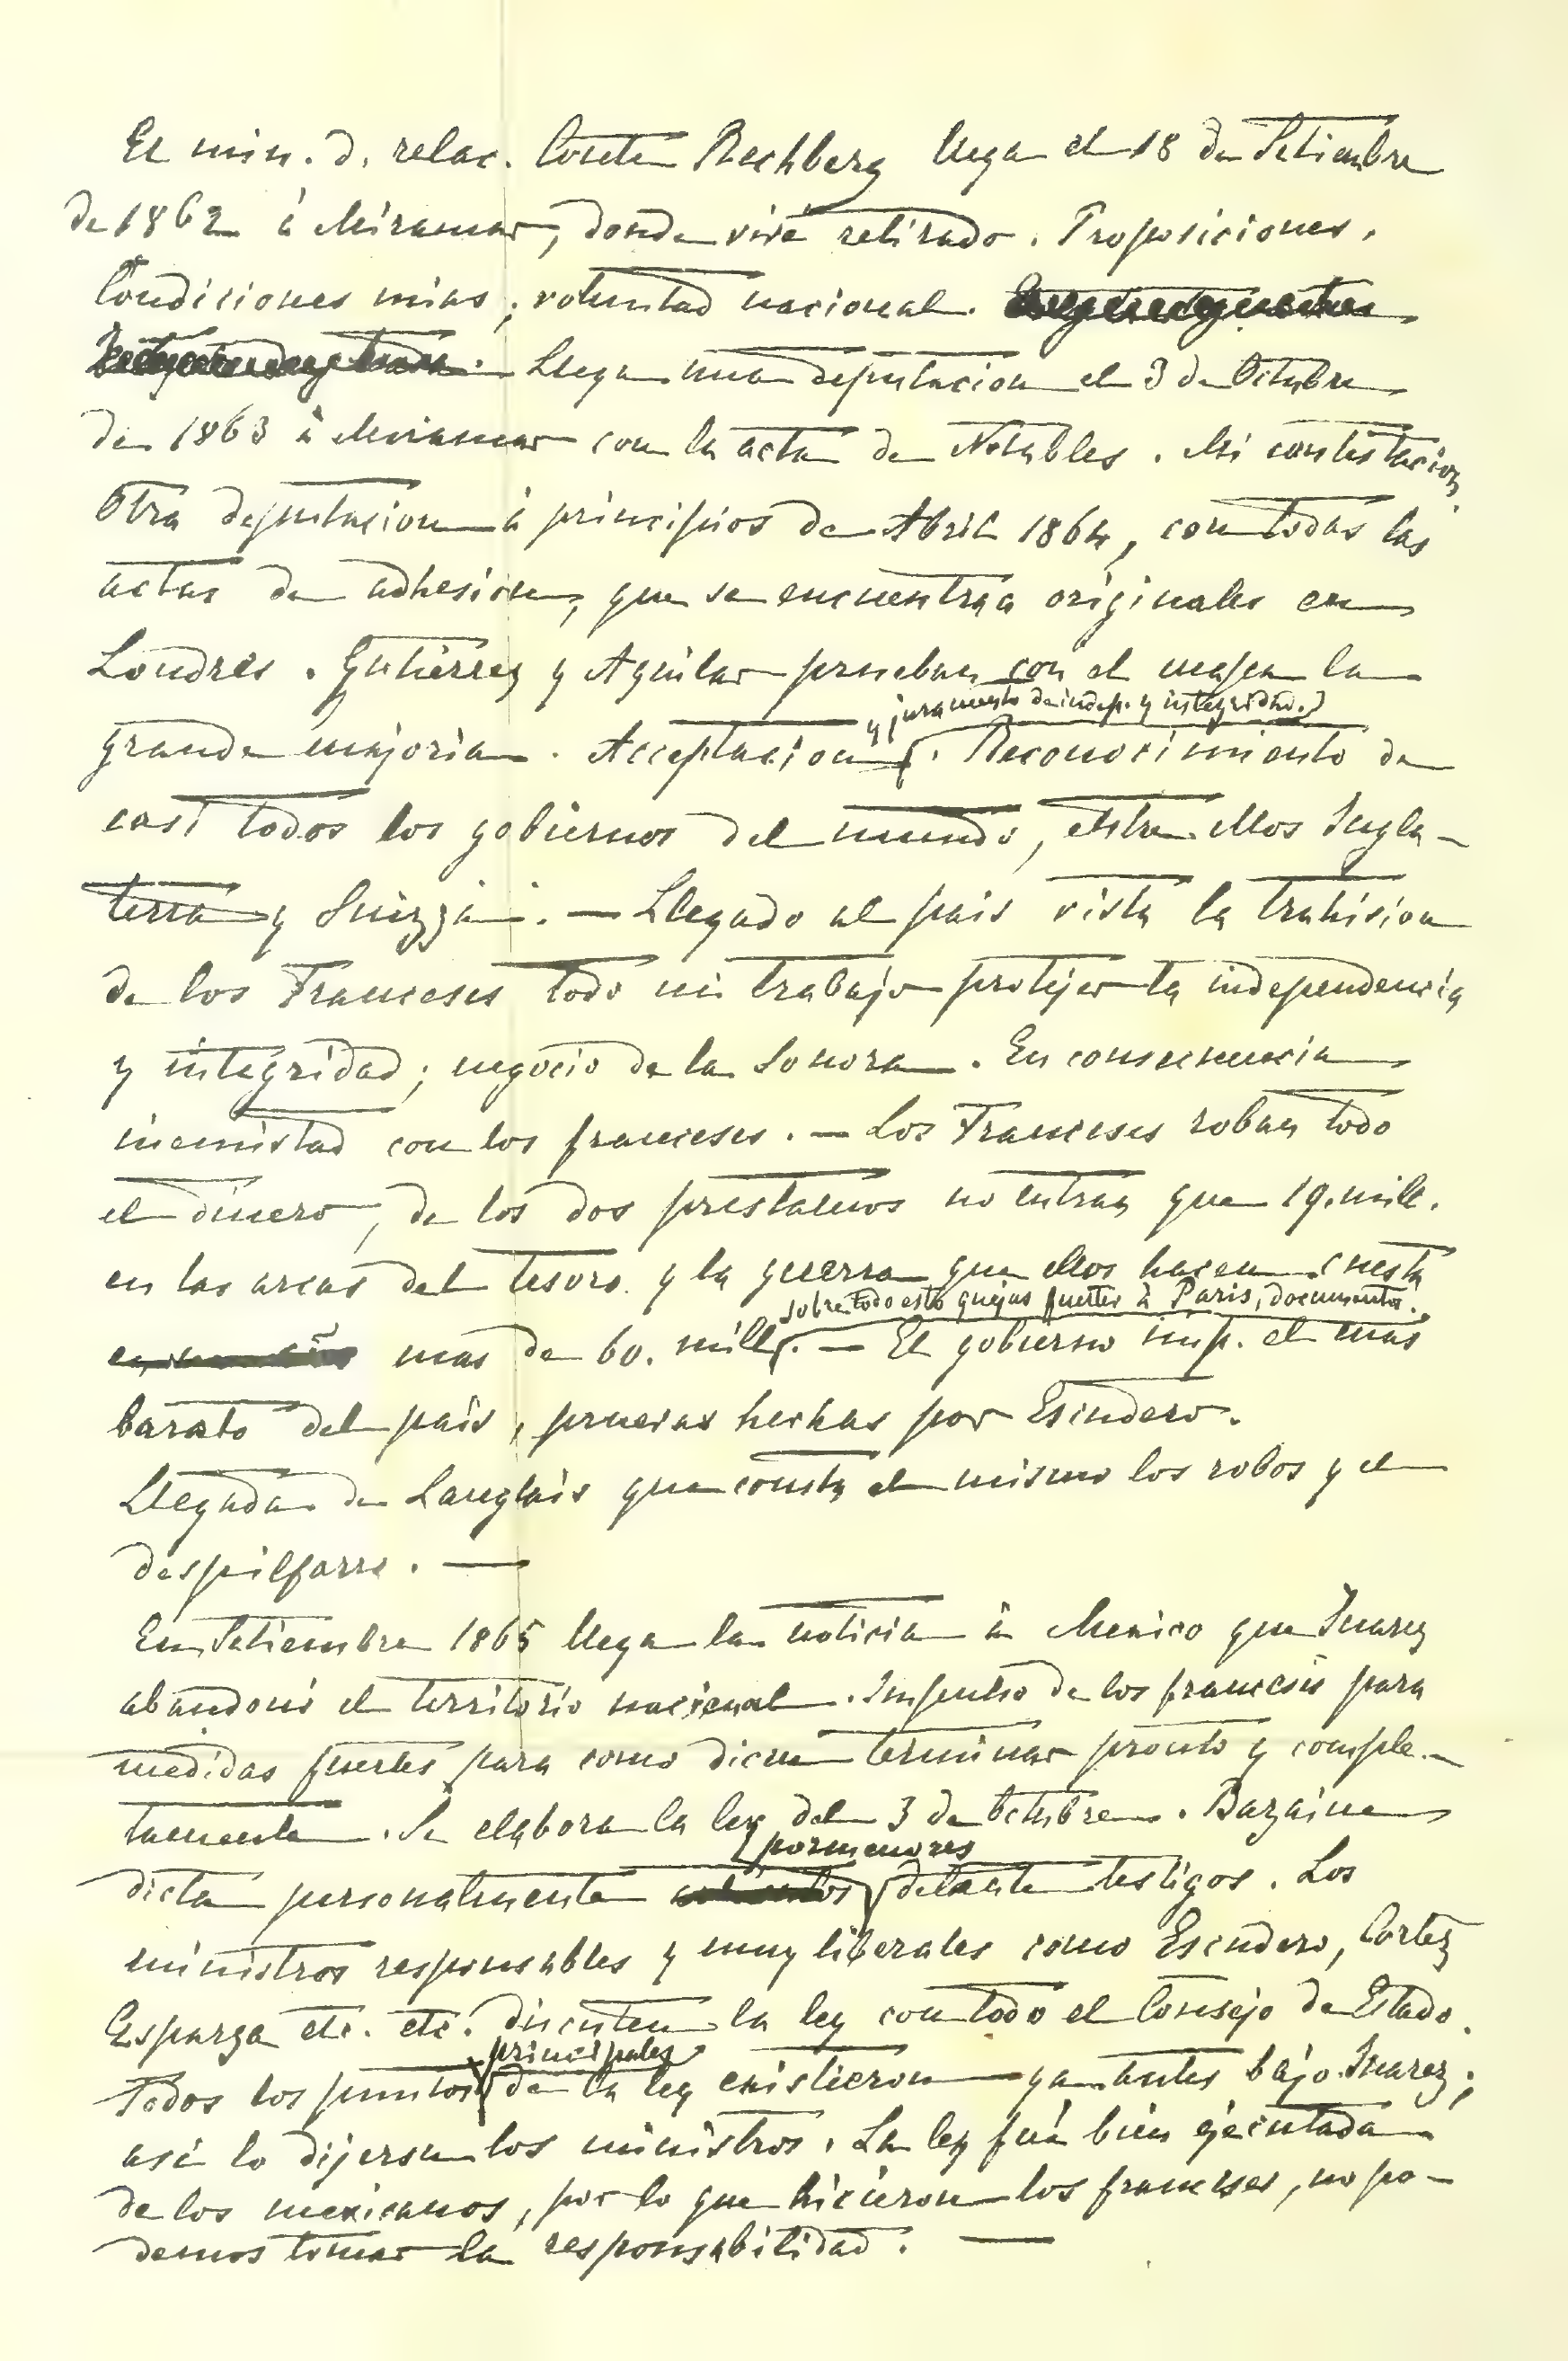 El min. d. relac. Conte Rechberg llega el 18 de Setiembre
de 1862 à Miramar, donde vivé retirado. Proposiciones.
Condiciones mias; voluntad nacional.
Llega una deputacion el 3 de Octubre
de 1863 à Miramar con la acta de Notables. Mi contestacion
Otra deputacion à principios de Abril 1864, con todas las
actas de adhesion, que se encuentran originales en
Londres. Gutierrez y Aguilar prueban con el mapa la
y juramento de indep. y integridad.
grande majoria. Acceptacion. Reconocimiento de
casi todos los gobiernos del mundo, entre ellos Ingla-
terra y Suizza. — Llegado al pais vista la trahision
de los Franceses todo mi trabajo protejer la independencia
y integridad; negocio de la Sonora. En consecuencia
inemistad con los franceses. — Los Franceses roban todo
el dinero, de los dos prestamos no entran que 19. mill.
en las arcas del tesoro y la guerra que ellos hacen cuesta
sobre todo esto quejas fuertes à Paris, documentos.
mas de 60. mill. — El gobierno imp. el mas
barato del pais, pruevas hechas por Escudero.
Llegada de Langlais que consta el mismo los robos y el
despilfarro. —
En Setiembre 1865 llega la noticia à Mexico que Juarez
abandonó el territorio nacional. Impulso de los franceses para
medidas fuertes para como dicen terminar pronto y comple-
tamente. Se elabora la ley del 3 de Octubre. Bazaine
pormenores
dicta personalmente delante testigos. Los
ministros responsables y muy liberales como Escudero, Cortez
Esparza etc. etc. discuten la ley con todo el Consejo de Estado.
principales
Todos los puntos de la ley existieron ya antes bajo Juarez;
asi lo dijeron los ministros. La ley fué bien ejecutada
de los mexicanos, por lo que hicieron los franceses, no po-
demos tomar la responsabilidad. —